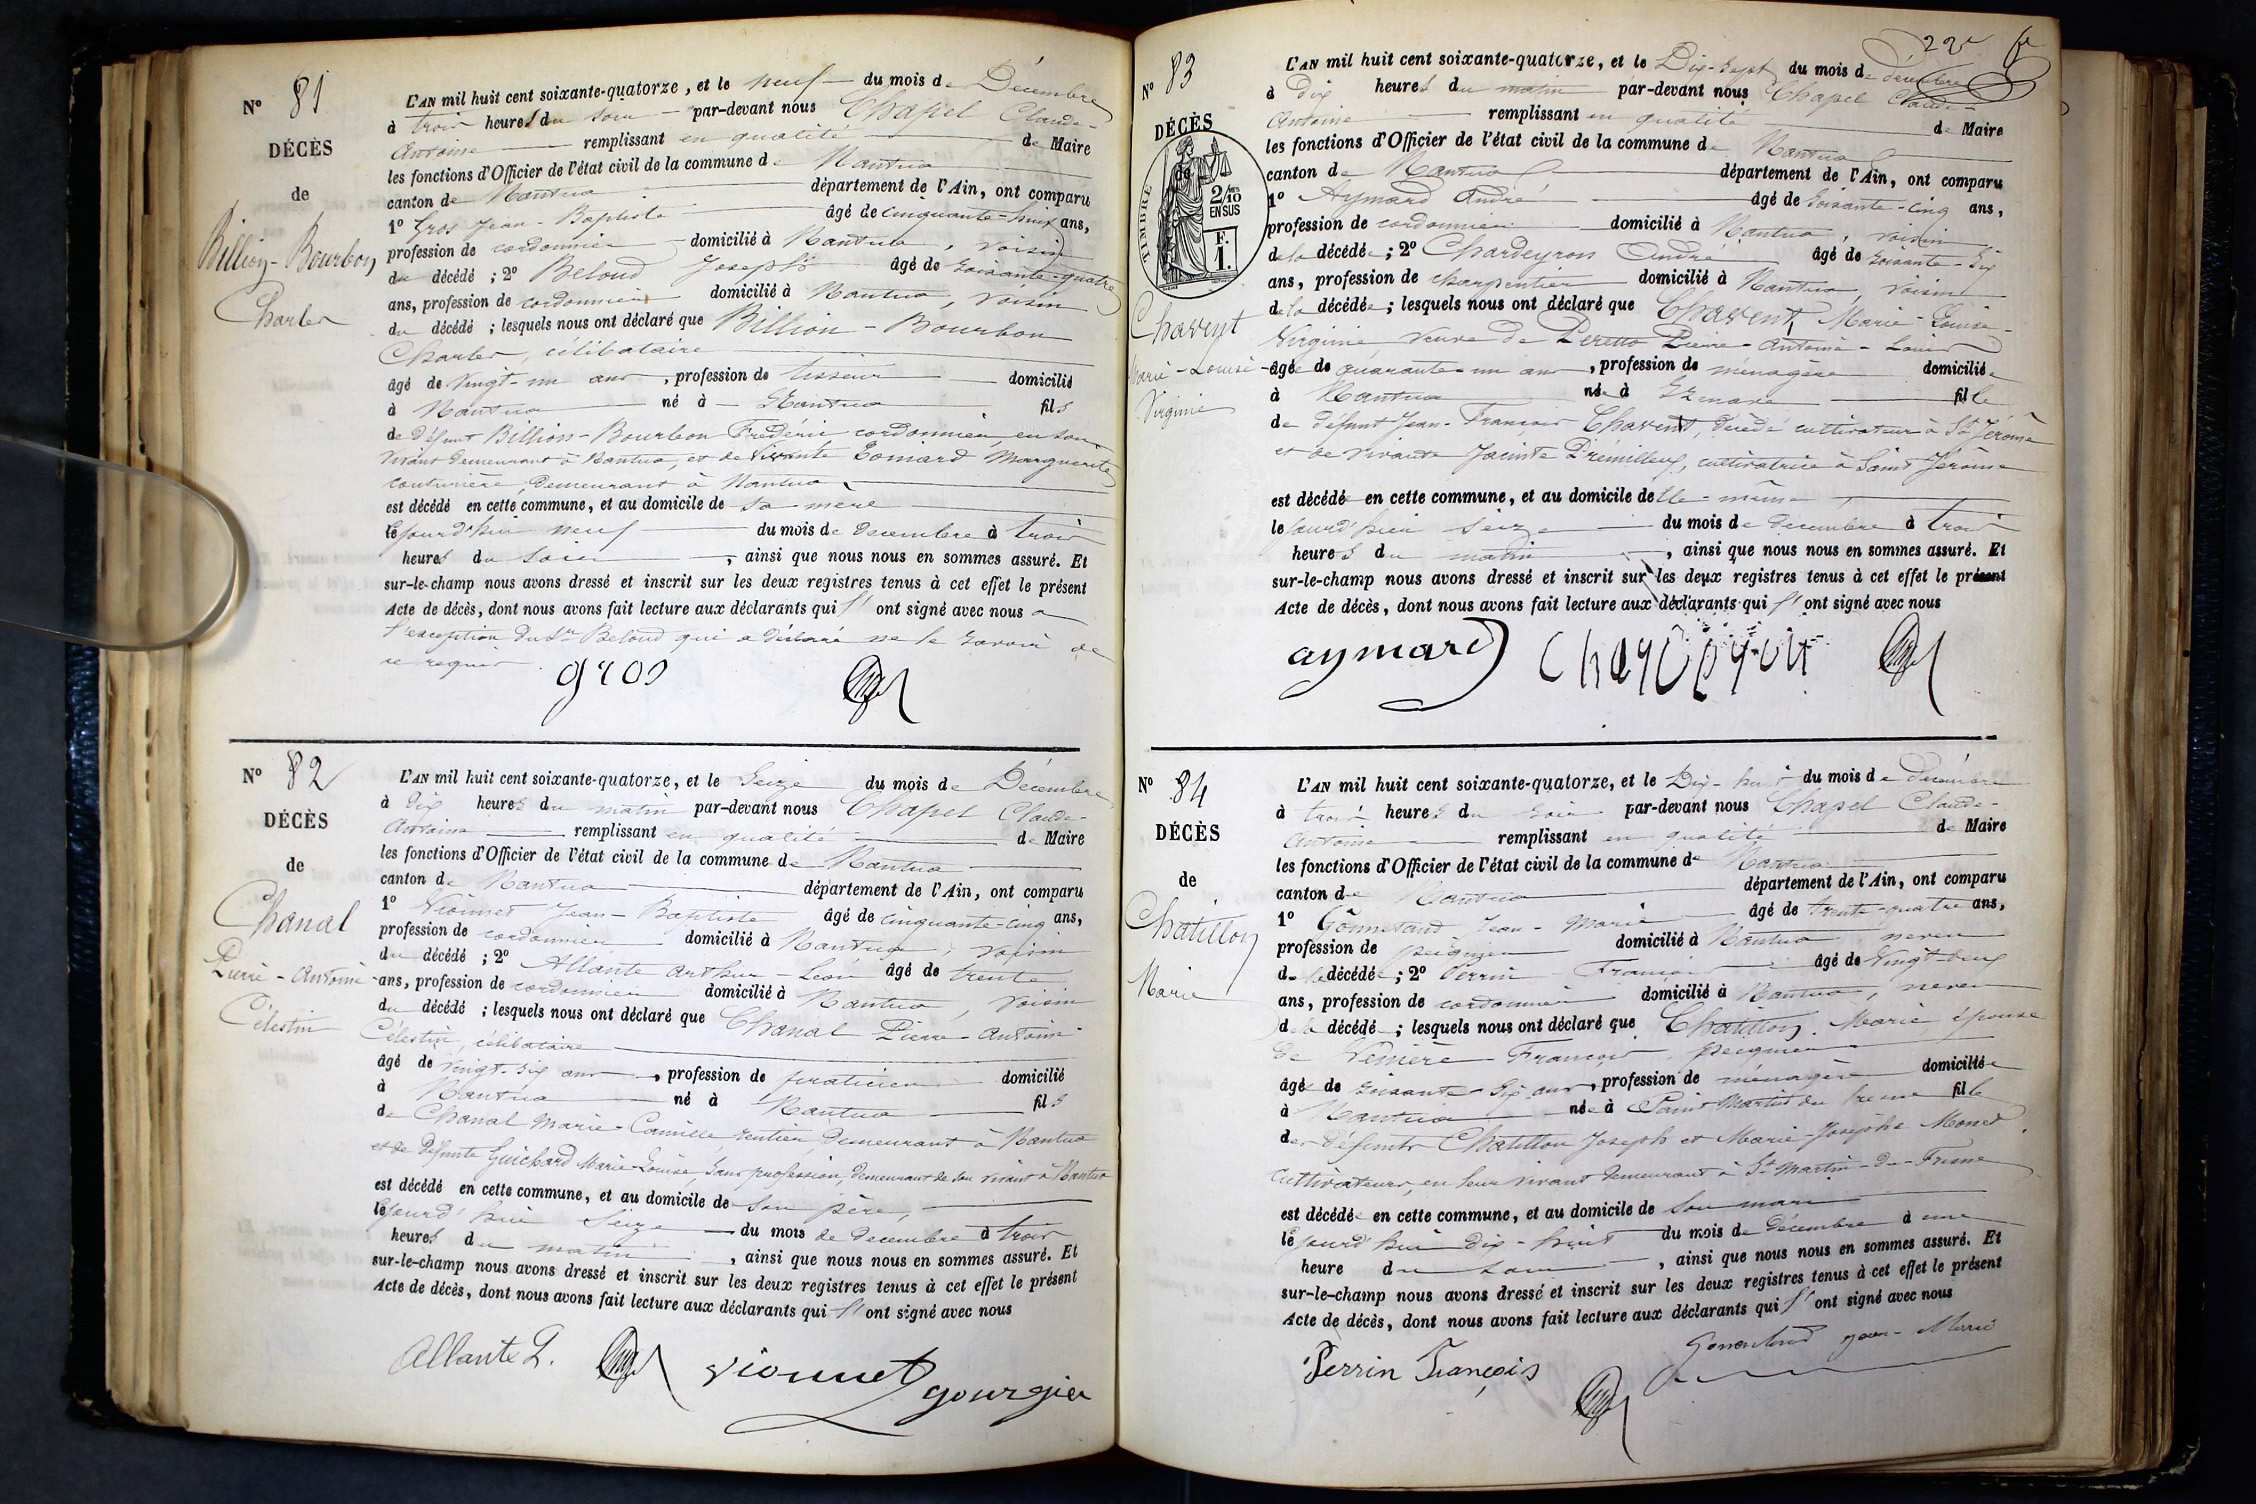 N° 81
DÉCÈS
de
Billion-Bourbon
Charles
L'AN mil huit cent soixante-quatorze, et le neuf du mois de Décembre
à trois heures du soir par-devant nous Chapel Claude-
Antoine remplissant en qualité de Maire
les fonctions d'Officier de l'état civil de la commune de Nantua
canton de Nantua département de l'Ain, ont comparu
1° Gros Jean Baptiste âgé de cinquante-huit ans,
profession de cordonnier domicilié à Nantua, voisin
du décédé ; 2° Beloud Joseph âgé de soixante-quatre
ans, profession de cordonnier domicilié à Nantua, voisin
du décédé ; lesquels nous ont déclaré que Billion-Bourbon
Charles, célibataire
âgé de vingt-un ans, profession de tisseur domicilié
à Nantua né à Nantua fils
de défunt Billion-Bourbon Frédéric cordonnier, en son
vivant demeurant à Nantua, et de vivante Comard Marguerite
couturière, demeurant à Nantua
est décédé en cette commune, et au domicile de sa mère
le jourd'hui neuf du mois de décembre à trois
heures du soir, ainsi que nous nous en sommes assuré. Et
sur-le-champ nous avons dressé et inscrit sur les deux registres tenus à cet effet le présent
Acte de décès, dont nous avons fait lecture aux déclarants qui l' ont signé avec nous à
l'exception du Sr Beloud qui a déclaré ne le savoir de
ce requis.
gros
N° 82
DÉCÈS
de
Chanal
Pierre-Antoine
Célestin
L'AN mil huit cent soixante-quatorze, et le seize du mois de Décembre
à dix heures du matin par-devant nous Chapel Claude-
Antoine remplissant en qualité de Maire
les fonctions d'Officier de l'état civil de la commune de Nantua
canton de Nantua département de l'Ain, ont comparu
1° Vionnet Jean-Baptiste âgé de cinquante-cinq ans,
profession de cordonnier domicilié à Nantua, voisin
du décédé ; 2° Allante Arthur-Léon âgé de trente
ans, profession de cordonnier domicilié à Nantua, voisin
du décédé ; lesquels nous ont déclaré que Chanal Pierre-Antoine
Célestin, célibataire
âgé de vingt-six ans, profession de praticien domicilié
à Nantua né à Nantua fils
de Chanal Marie-Camille rentier, demeurant à Nantua
et de défunte Guichard Marie-Louise, sans profession, demeurant de son vivant à Nantua
est décédé en cette commune, et au domicile de son père,
le jourd'hui seize du mois de décembre à trois
heures du matin, ainsi que nous nous en sommes assuré. Et
sur-le-champ nous avons dressé et inscrit sur les deux registres tenus à cet effet le présent
Acte de décès, dont nous avons fait lecture aux déclarants qui l' ont signé avec nous
Allante L.
vionnet
gourgier
22e
N° 83
DÉCÈS
de
TIMBRE
2/10
EN SUS
F.
1.
Chavent
Marie-Louise-
Virginie
L'AN mil huit cent soixante-quatorze, et le Dix-sept du mois de décembre
à dix heures du matin par-devant nous Chapel Claude-
Antoine remplissant en qualité de Maire
les fonctions d'Officier de l'état civil de la commune de Nantua
canton de Nantua département de l'Ain, ont comparu
1° Aymard André âgé de soixante-cinq ans,
profession de cordonnier domicilié à Nantua, voisin
de la décédée ; 2° Chardeyron André âgé de soixante-six
ans, profession de charpentier domicilié à Nantua, voisin
de la décédée ; lesquels nous ont déclaré que Chavent, Marie-Louise-
Virginie veuve de Peretto Pierre-Antoine-Louis
âgée de quarante-un ans, profession de ménagère domiciliée
à Nantua née à Izenave fille
de défunt Jean-François Chavent, décédé cultivateur à St Jérôme
et de vivante Jacinte Prémilleux, cultivatrice à Saint Jérôme
est décédée en cette commune, et au domicile de elle-même
le jourd'hui seize du mois de décembre à trois
heures du matin, ainsi que nous nous en sommes assuré. Et
sur-le-champ nous avons dressé et inscrit sur les deux registres tenus à cet effet le présent
Acte de décès, dont nous avons fait lecture aux déclarants qui l' ont signé avec nous
aymard
N° 84
DÉCÈS
de
Chatillon
Marie
L'AN mil huit cent soixante-quatorze, et le Dix-huit du mois de décembre
à trois heures du soir par-devant nous Chapel Claude-
Antoine remplissant en qualité de Maire
les fonctions d'Officier de l'état civil de la commune de Nantua
canton de Nantua département de l'Ain, ont comparu
1° Gonnetand Jean-Marie âgé de trente-quatre ans,
profession de peigneur domicilié à Nantua neveu
de la décédée ; 2° Perrin François âgé de vingt-deux
ans, profession de cordonnier domicilié à Nantua, neveu
de la décédée ; lesquels nous ont déclaré que Chatillon Marie, épouse
de François, peigneur
âgée de soixante-six ans, profession de ménagère domiciliée
à Nantua née à Saint Martin du fresne fille
des défunts Chatillon Joseph et Marie Josephe Monet
cultivateurs, en leur vivant demeurant à St Martin-du-Fresne
est décédée en cette commune, et au domicile de son mari
le jourd'hui dix-huit du mois de décembre à une
heure du soir, ainsi que nous nous en sommes assuré. Et
sur-le-champ nous avons dressé et inscrit sur les deux registres tenus à cet effet le présent
Acte de décès, dont nous avons fait lecture aux déclarants qui l' ont signé avec nous
Perrin François